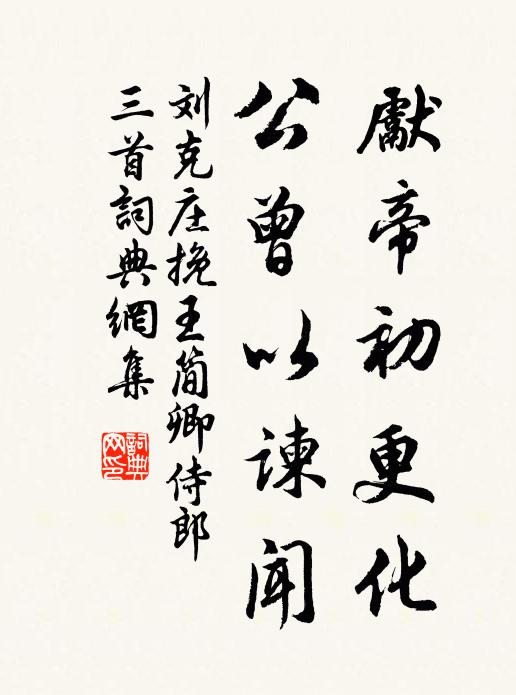 獻帝初更化
公曾以諫聞
刘克庄挽王简卿侍郎
三首詞典網集
詞典
网印